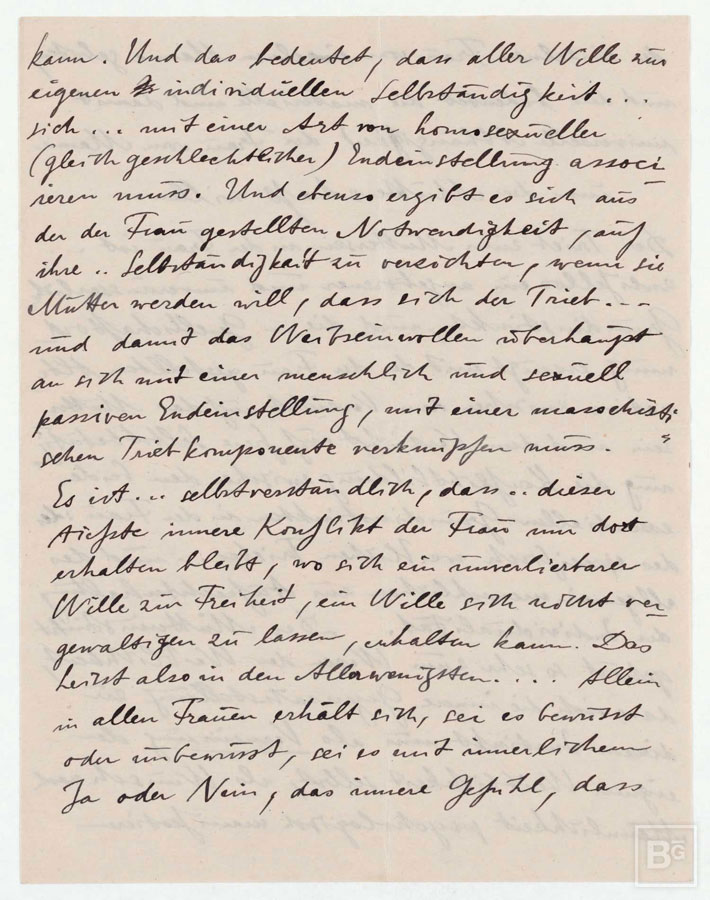 kann. Und das bedeutet, dass aller Wille zur
eigenen individuellen Selbständigkeit...
sich... mit einer Art von homosexueller
(gleichgeschlechtlicher) Endeinstellung associ-
ieren muss. Und ebenso ergibt es sich aus
der der Frau gestellten Notwendigkeit, auf
ihre.. Selbständigkeit zu verzichten, wenn sie
Mutter werden will, dass sich der Trieb...
und damit das Weibseinwollen überhaupt
an sich mit einer menschlich und sexuell
passiven Endeinstellung, mit einer masochisti-
schen Triebkomponente verknüpfen muss."
Es ist... selbstverständlich, dass.. dieser
tiefste innere Konflikt der Frau nur dort
erhalten bleibt, wo sich ein unverlierbarer
Wille zur Freiheit, ein Wille sich nicht ver-
gewaltigen zu lassen, erhalten kann. Das
heisst also in den Allerwenigsten.... Allein
in allen Frauen erhält sich, sei es bewusst
oder unbewusst, sei es mit innerlichem
Ja oder Nein, das innere Gefühl, dass
BG